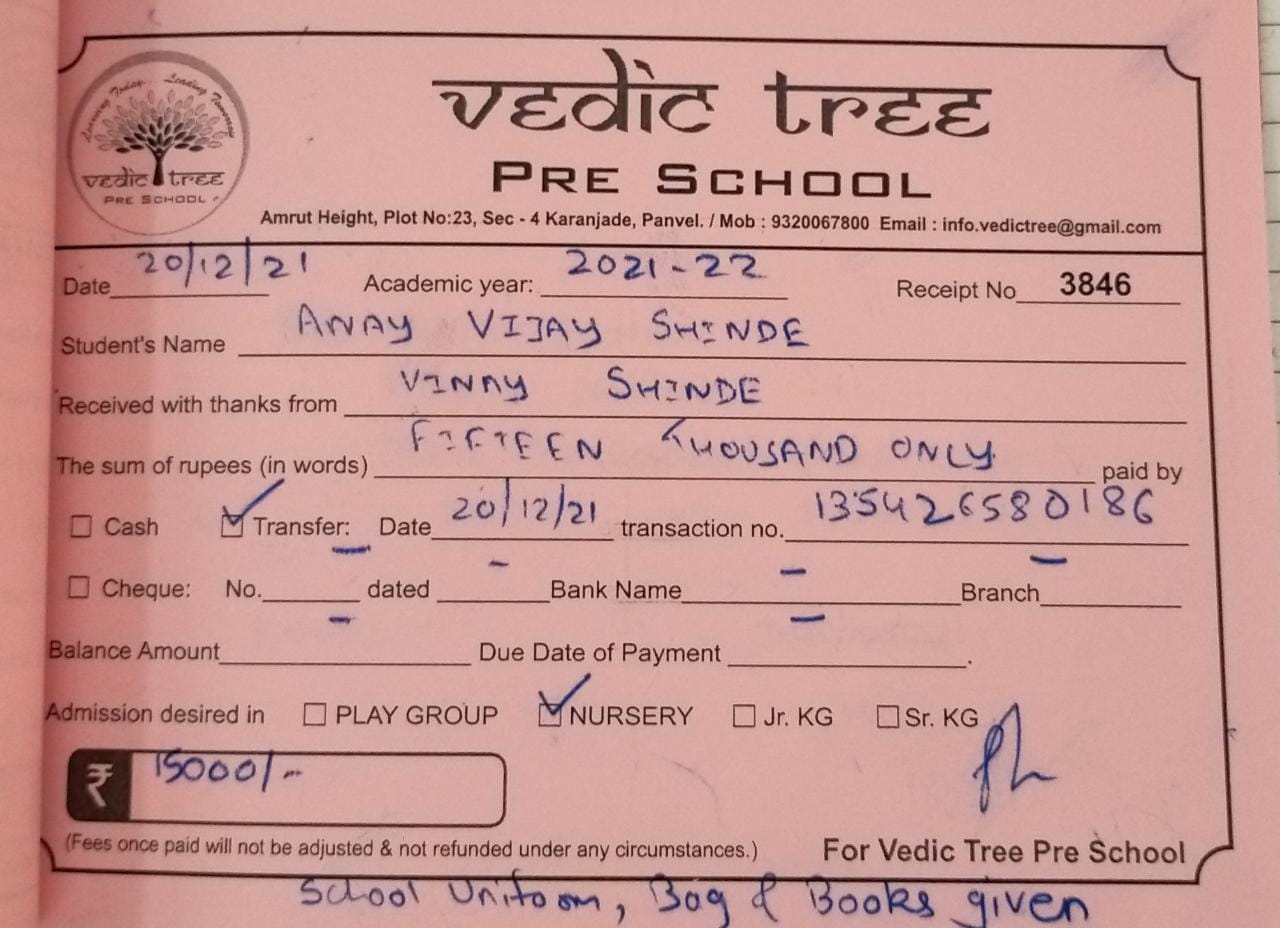 Learning Today... Leading Tomorrow
vedic tree
PRE SCHOOL
vedic tree
PRE SCHOOL
Amrut Height, Plot No:23, Sec - 4 Karanjade, Panvel. / Mob : 9320067800 Email : info.vedictree@gmail.com
Date 20/12/21 Academic year: 2021-22 Receipt No 3846
Student's Name ANAY VIJAY SHINDE
Received with thanks from VINAY SHINDE
The sum of rupees (in words) FIFTEEN THOUSAND ONLY paid by
Cash Transfer: Date 20/12/21 transaction no. 135426580186
Cheque: No. - dated - Bank Name - Branch -
Balance Amount - Due Date of Payment -.
Admission desired in PLAY GROUP NURSERY Jr. KG Sr. KG
₹ 15000/-
(Fees once paid will not be adjusted & not refunded under any circumstances.) For Vedic Tree Pre School
School Uniform, Bag & Books given